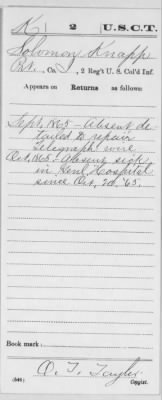 K | 2 | U.S.C.T.
Solomon Knapp
Pvt., Co. I, 2 Reg't U. S. Col'd Inf.
Appears on Returns as follows:
Sept. 1865 - Absent de
tailed to repair
Telegraph wire
Oct. 1865 - Absent sick
in Genl. Hospital
since Oct. 20, '65.
Book mark:
O. T. Taylor
(546) Copyist.